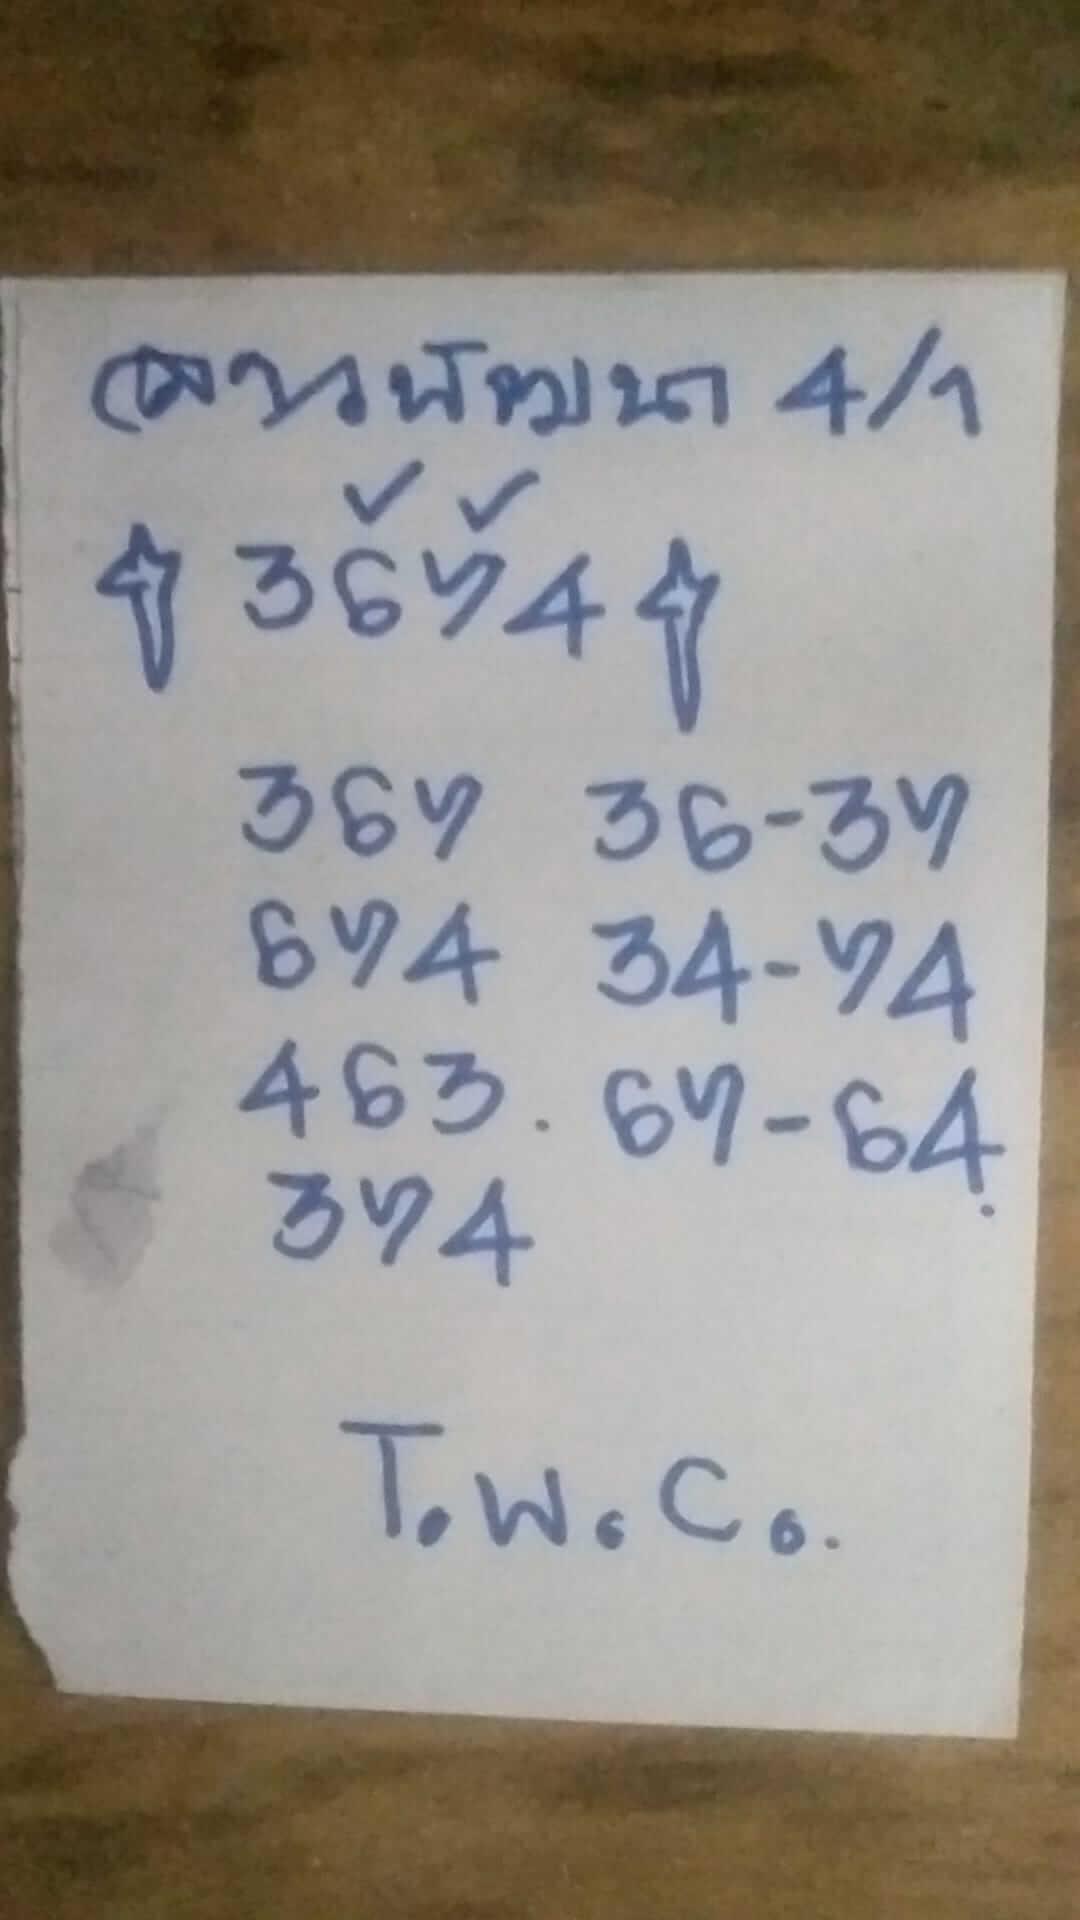 ลาวพัฒนา 4/1
3674
367 36-37
674 34-74
463. 67-64.
374
T.W.C..